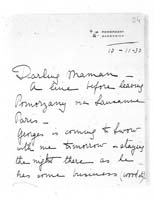 24
POMORZANY
10 - 11 - 30
Darling Maman -
A line before leaving
Pomorzany via Lausanne
Paris -
Georges is coming to Lwow
with me tomorrow - staying
the night there as he
has some business